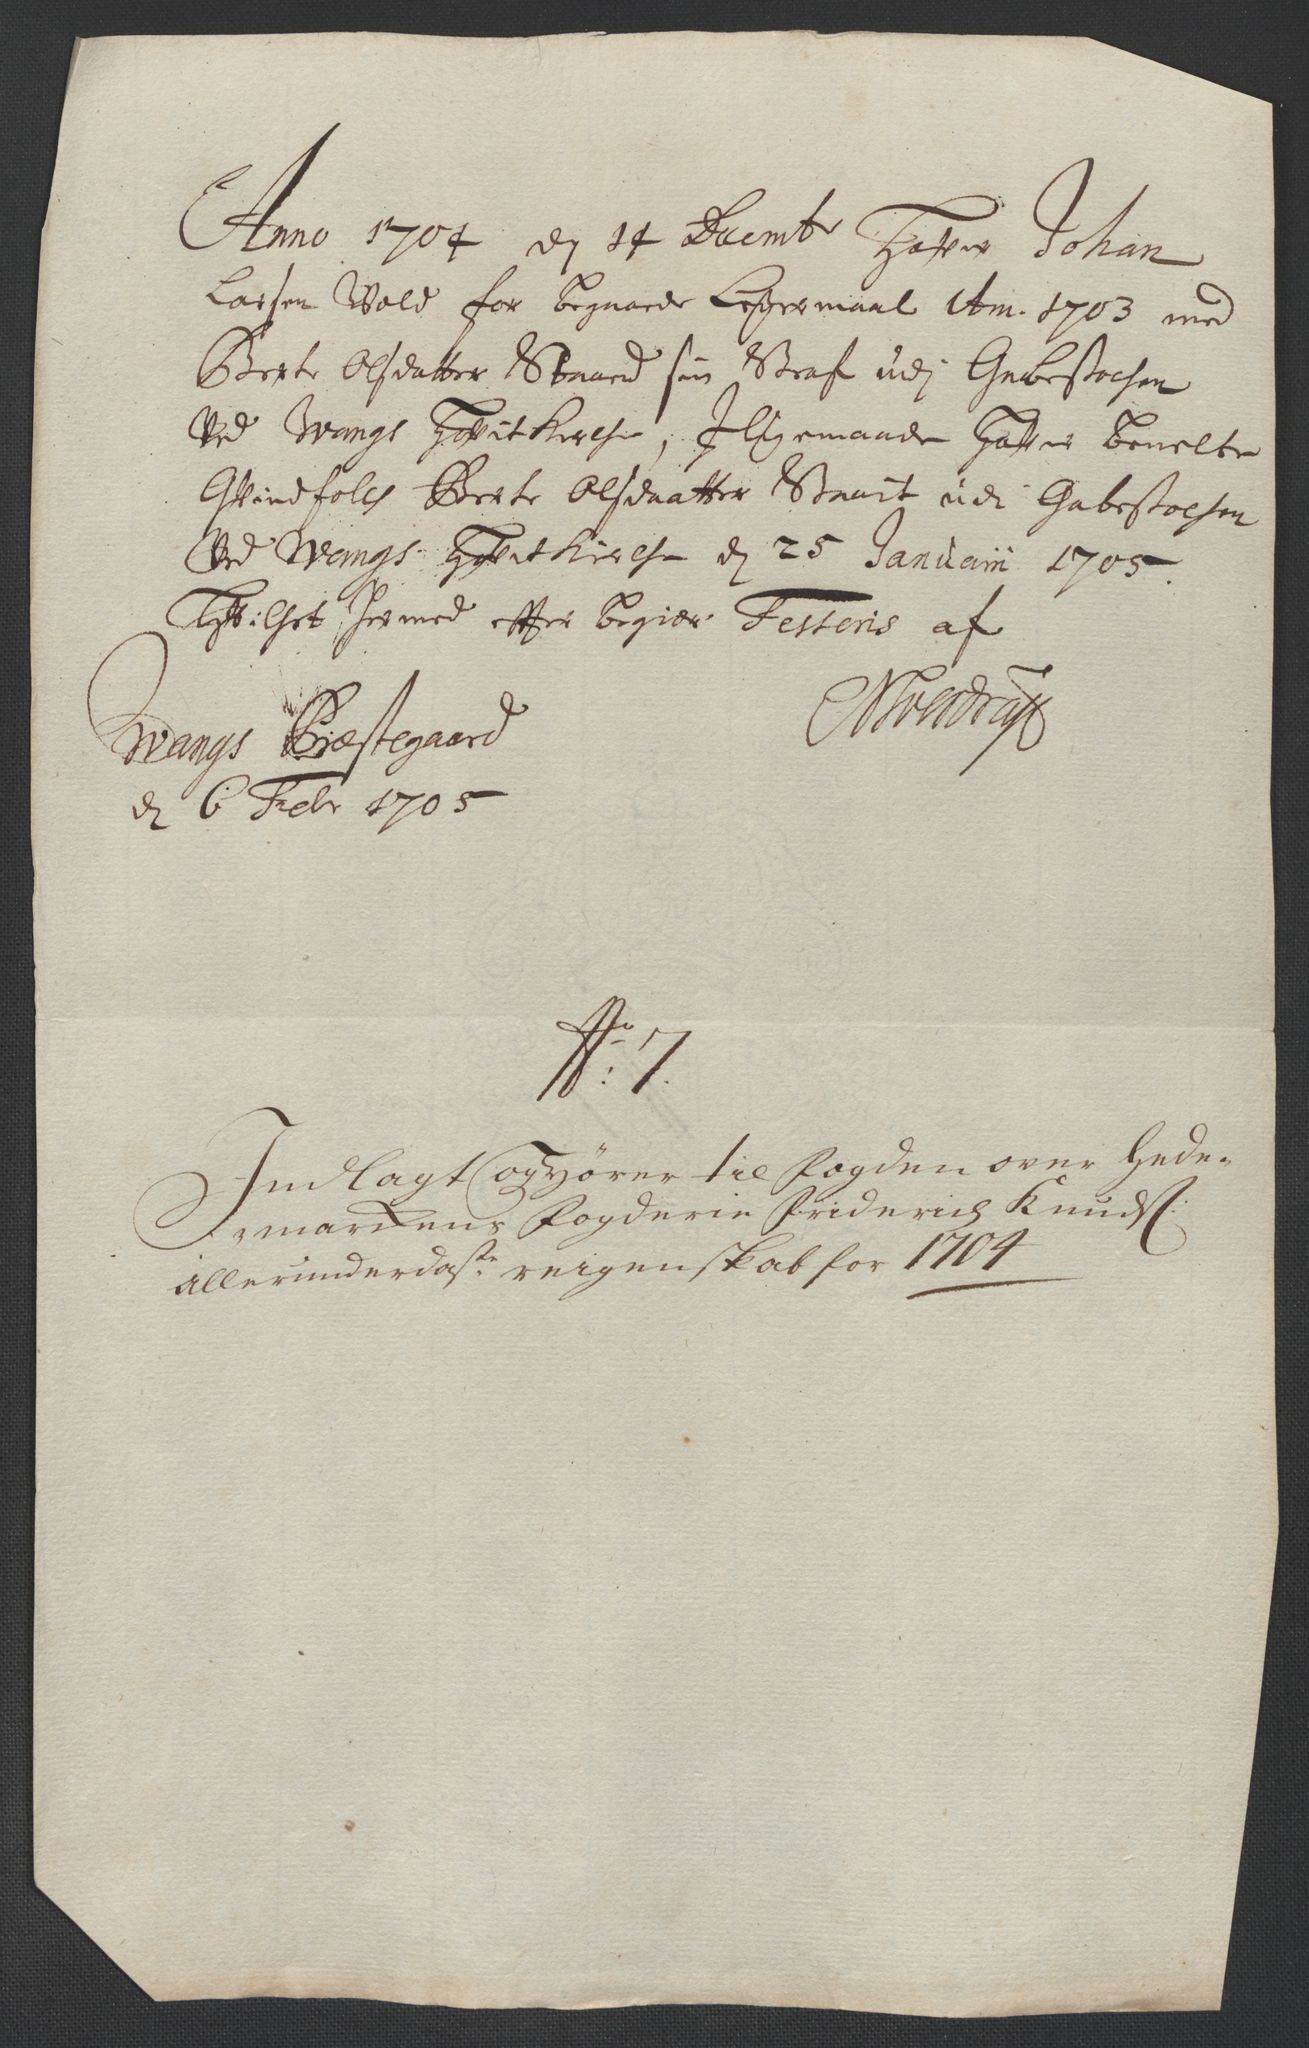 Anno 1704 dn 14 Decembr Hafver Johan
Larsen Wold for begaaede Leyermaal Am. 1703 med
Berte Olsdatter Staaed sin Straf udj Gabestochen
Ved Wangs Hovitkirche, Iligemaade Hafver bemelte
Qvindfolch Berte Olsdaatter Staait udi Gabestochen
Ved Wangs Hovitkirche dn 25 Januarii 1705.
Hvilchet hermed efter begier Testeris af
Wangs Præstegaard
dn 6 Febr 1705
No: 7.
Indlagt og hörer til Fogden over Hede-
marckens Fogderie Friderich Knuds:
allerunderdaste reigenskab for 1704